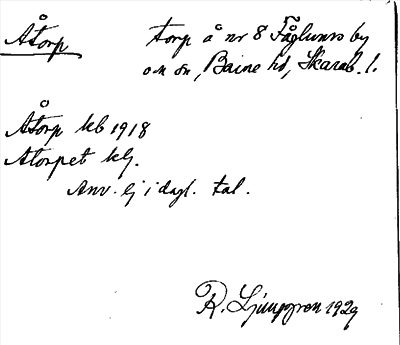 Åtorp torp å nr 8 Fåglums by
om sn, Barne hd, Skarab. l.
Åtorp kb 1918
Åtorpet klj.
Anv. ej i dagl. tal.
R. Ljunggren 1929